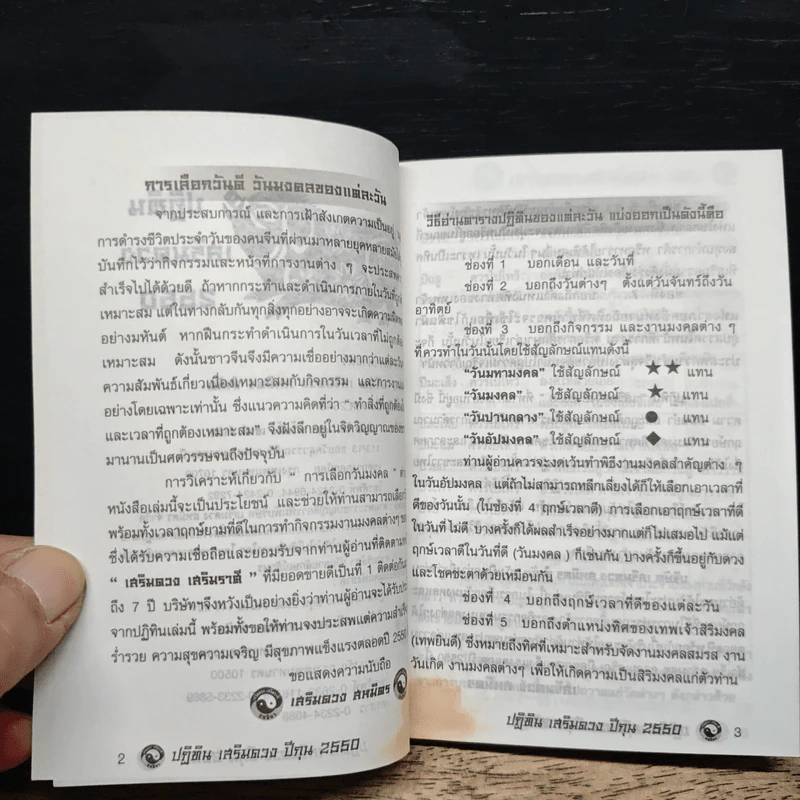 การเลือกวันดี วันมงคลของแต่ละวัน
จากประสบการณ์ และการเฝ้าสังเกตความเป็นอยู่
การดำรงชีวิตประจำวันของคนจีนที่ผ่านมาหลายยุคหลายสมัย
บันทึกไว้ว่ากิจกรรมและหน้าที่การงานต่าง ๆ จะประสพ
สำเร็จไปได้ด้วยดี ถ้าหากกระทำและดำเนินการภายในวันที่
เหมาะสม แต่ในทางกลับกันทุกสิ่งทุกอย่างอาจจะเกิดความ
อย่างมหันต์ หากฝืนกระทำดำเนินการในวันเวลาที่ไม่ถูก
เหมาะสม ดังนั้นชาวจีนจึงมีความเชื่ออย่างมากว่าแต่ละ
ความสัมพันธ์เกี่ยวเนื่องเหมาะสมกับกิจกรรม และการงาน
อย่างโดยเฉพาะเท่านั้น ซึ่งแนวความคิดที่ว่า “ ทำสิ่งที่ถูกต้อง
และเวลาที่ถูกต้องเหมาะสม” จึงฝังลึกอยู่ในจิตวิญญาณของ
มานานเป็นศตวรรษจนถึงปัจจุบัน
การวิเคราะห์ที่เกี่ยวกับ “ การเลือกวันมงคล ”
หนังสือเล่มนี้จะเป็นประโยชน์ และช่วยให้ท่านสามารถเลือก
พร้อมทั้งเวลาฤกษ์ยามที่ดีในการทำกิจกรรมงานมงคลต่างๆ
ซึ่งได้รับความเชื่อถือและยอมรับจากท่านผู้อ่านที่ติดตาม
“ เสริมดวง เสริมราศี ” ที่มียอดขายดีเป็นที่ 1 ติดต่อกัน
ถึง 7 ปี บริษัทฯจึงหวังเป็นอย่างยิ่งว่าท่านผู้อ่านจะได้รับ
จากปฏิทินเล่มนี้ พร้อมทั้งขอให้ท่านจงประสพแต่ความสำเร็จ
ร่ำรวย ความสุขความเจริญ มีสุขภาพแข็งแรงตลอดปี 2550
ขอแสดงความนับถือ
เสริมดวง สหมิตร
2 ปฏิทิน เสริมดวง ปีกุน 2550
วิธีอ่านตารางปฏิทินของแต่ละวัน แบ่งออกเป็นดังนี้คือ
ช่องที่ 1 บอกเดือน และวันที่
ช่องที่ 2 บอกถึงวันต่างๆ ตั้งแต่วันจันทร์ถึงวัน
อาทิตย์
ช่องที่ 3 บอกถึงกิจกรรม และงานมงคลต่าง ๆ
ที่ควรทำในวันนั้นโดยใช้สัญลักษณ์แทนดังนี้
“วันมหามงคล” ใช้สัญลักษณ์ ★★ แทน
“วันมงคล” ใช้สัญลักษณ์ ★ แทน
“วันปานกลาง” ใช้สัญลักษณ์ ● แทน
“วันอัปมงคล” ใช้สัญลักษณ์ ◆ แทน
ท่านผู้อ่านควรจะงดเว้นทำพิธีงานมงคลสำคัญต่าง ๆ
ในวันอัปมงคล แต่ถ้าไม่สามารถหลีกเลี่ยงได้ก็ให้เลือกเอาเวลาที่
ดีของวันนั้น (ในช่องที่ 4 ฤกษ์เวลาดี) การเลือกเอาฤกษ์เวลาที่ดี
ในวันที่ไม่ดี บางครั้งก็ได้ผลสำเร็จอย่างมากแต่ก็ไม่เสมอไป แม้แต่
ฤกษ์เวลาดีในวันที่ดี (วันมงคล ) ก็เช่นกัน บางครั้งก็ขึ้นอยู่กับดวง
และโชคชะตาด้วยเหมือนกัน
ช่องที่ 4 บอกถึงฤกษ์เวลาที่ดีของแต่ละวัน
ช่องที่ 5 บอกถึงตำแหน่งทิศของเทพเจ้าสิริมงคล
(เทพยินดี) ซึ่งหมายถึงทิศที่เหมาะสำหรับจัดงานมงคลสมรส งาน
วันเกิด งานมงคลต่างๆ เพื่อให้เกิดความเป็นสิริมงคลแก่ตัวท่าน
ปฏิทิน เสริมดวง ปีกุน 2550 3